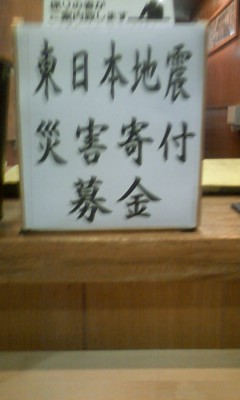 東日本地震
災害寄付
募金